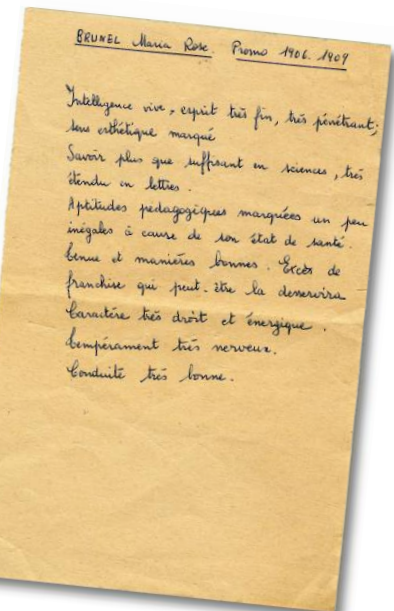 BRUNEL Maria Rose. Promo 1906.1909
Intelligence vive, esprit très fin, très pénétrant;
sens esthétique marqué
Savoir plus que suffisant en sciences, très
étendu en lettres.
Aptitudes pédagogiques marquées un peu
inégales à cause de son état de santé.
Tenue et manières bonnes. Excès de
franchise qui peut-être la desservira
Caractère très droit et énergique.
Tempérament très nerveux.
Conduite très bonne.